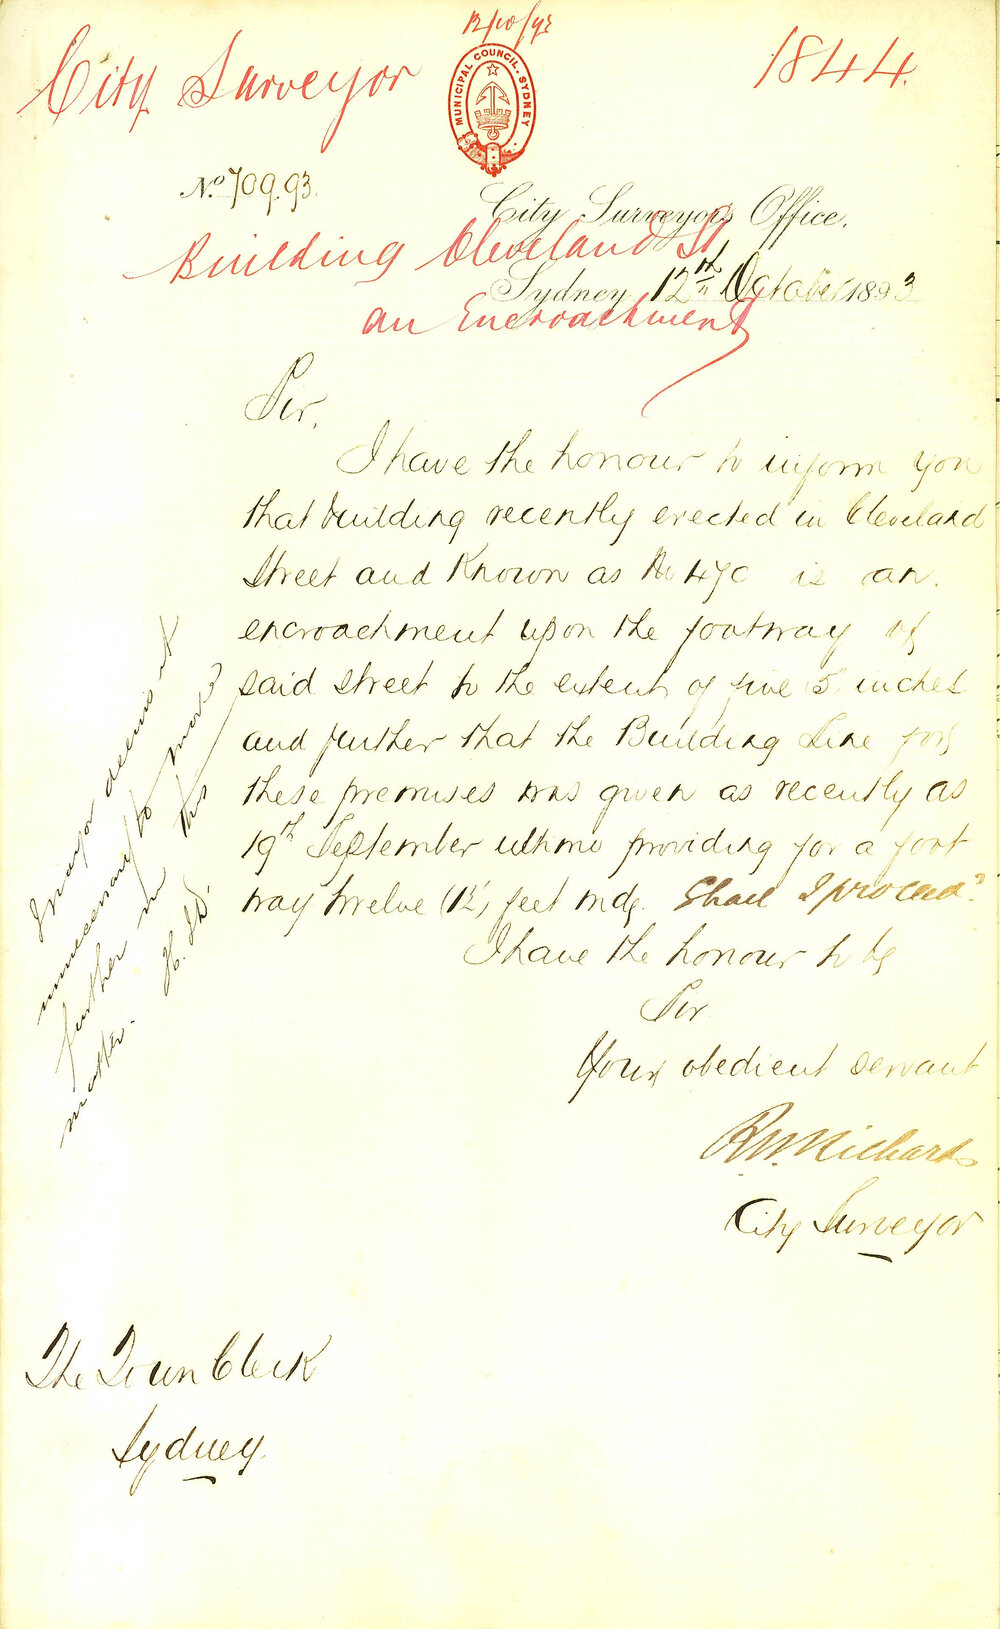 12/10/93
City Surveyor
MUNICIPAL COUNCIL. SYDNEY
1844.
No. 709.93.
City Surveyor's Office,
Building Cleveland St
Sydney 12th October 1893
an Encroachment
Sir,
I have the honour to inform you
that building recently erected in Cleveland
Street and Known as No 470 is an
encroachment upon the footway of
said street to the extent of five 5 inches
and further that the Building Line for
these premises was given as recently as
19th September ultimo providing for a foot
way twelve (12') feet wide. Shall I proceed?
I have the honour to be
Sir
Your obedient servant
R.W. Richards
City Surveyor
The Town Clerk
Sydney.
Mayor deems it
unnecessary to move
further in this
matter. H. D.